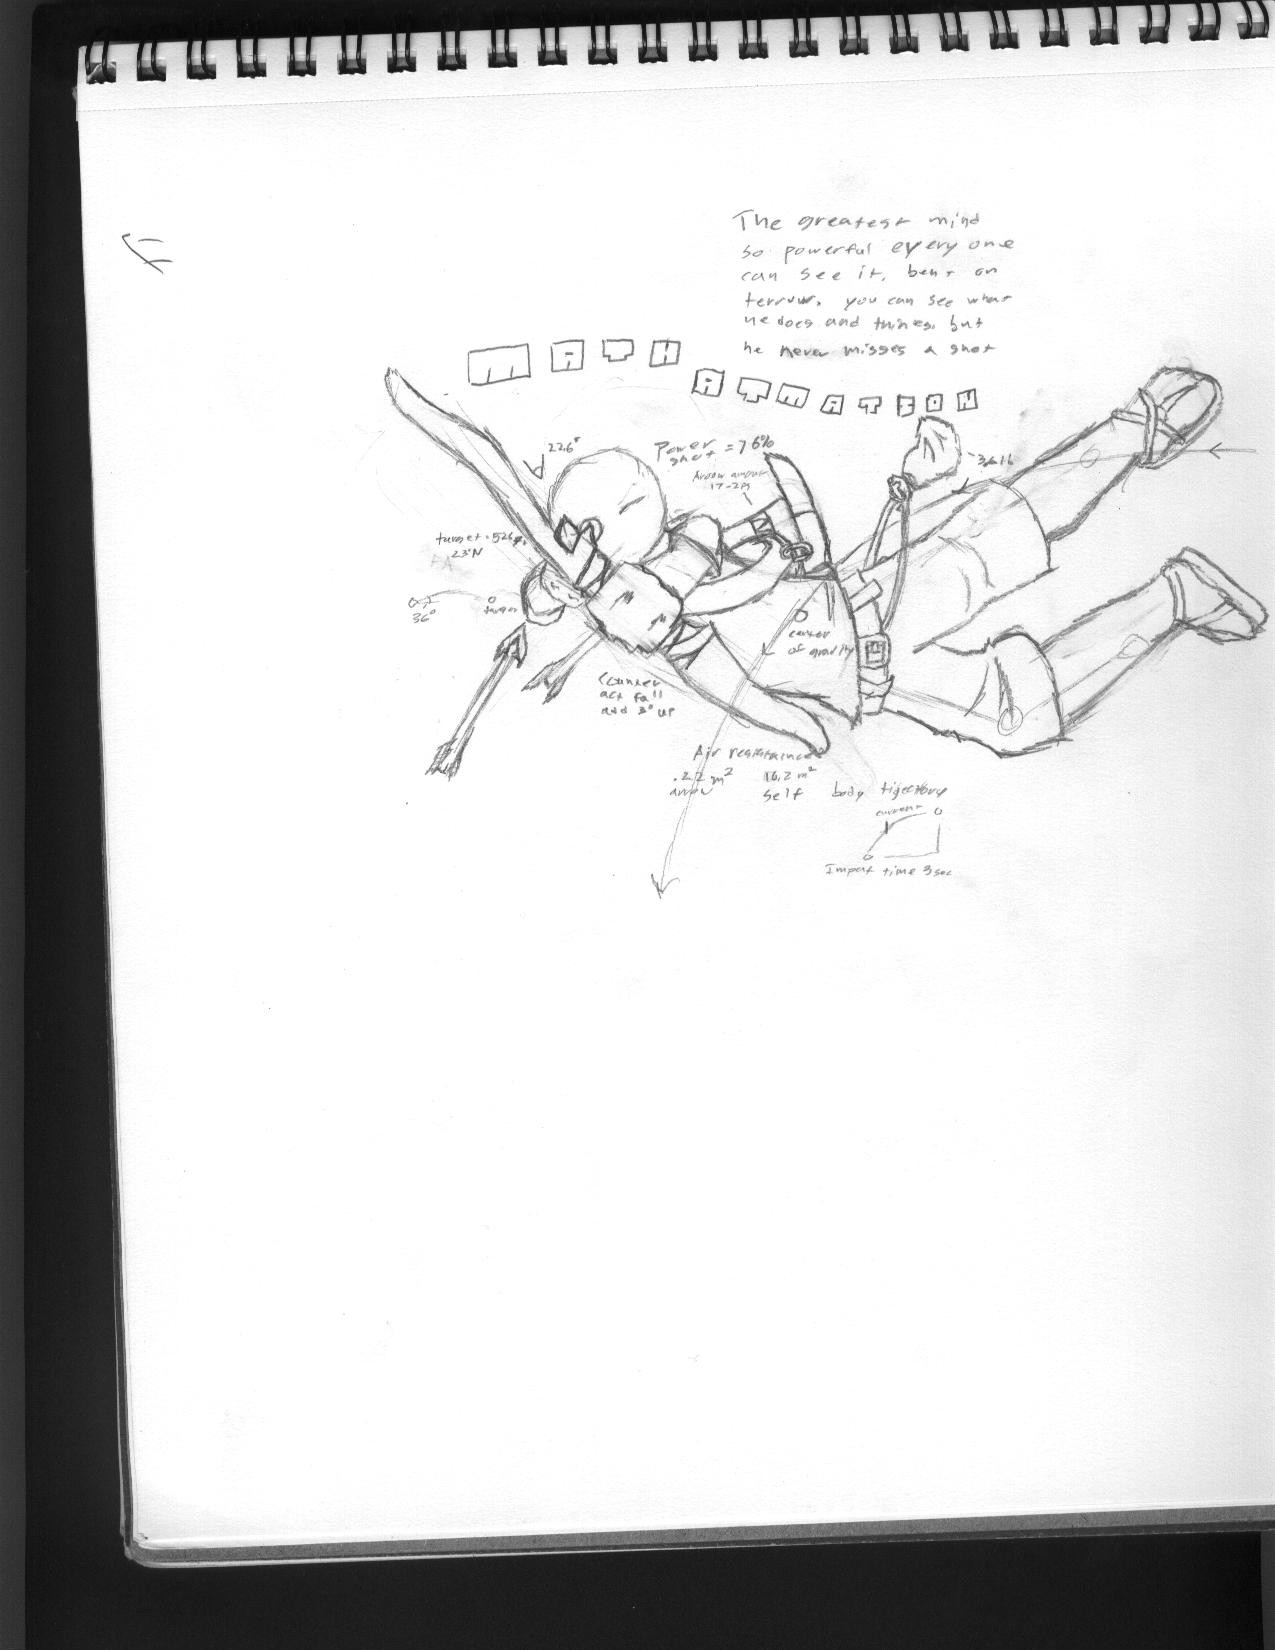 The greatest mind
so powerful every one
can see it, bent on
terrow. you can see what
he does and thinks. but
he never misses a shot
MATH
ATMATION
226°
Power
shot = 76%
Arrow amount
36 lb
23°N
36°
target
center
of gravity
Counter
act fall
add 3° up
Air resistance
.22 m² 16.2 m²
arrow self
body trjectory
current
Impact time 3 sec